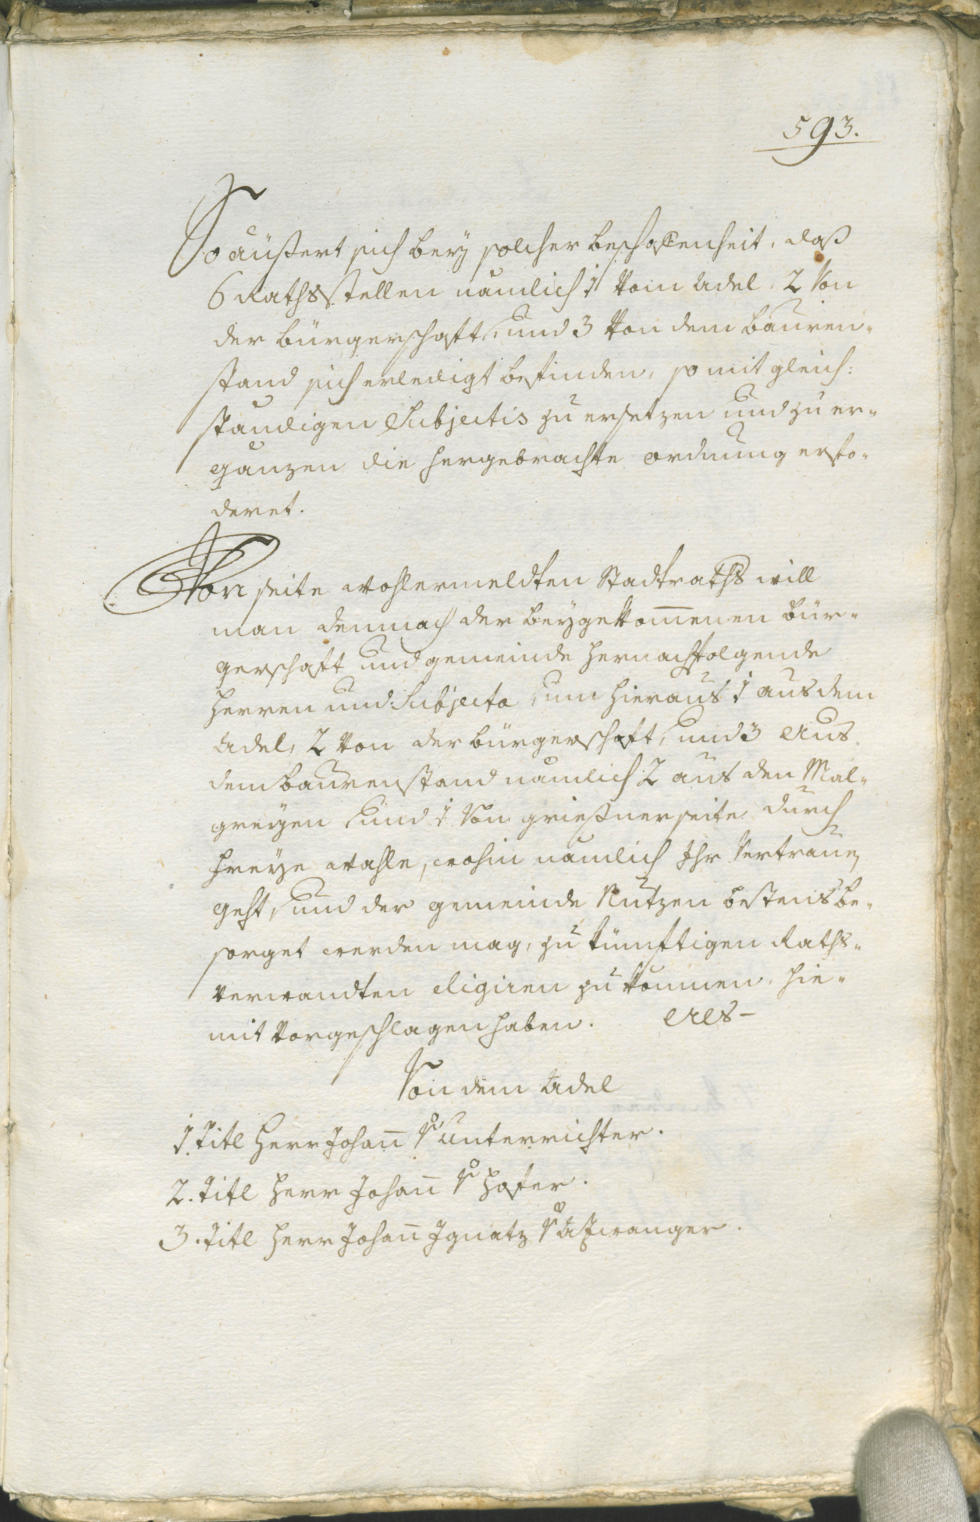 593.
So äußert sich bey solcher beschaffenheit, daß
6 Rathsstellen nämlich 1 vom Adel, 2 von
der bürgerschafft, und 3 von dem bauren-
stand sich erledigt befinden, so mit gleich:
ständigen Subjectis zu ersetzen und zu er-
gänzen die hergebrachte ordnung erfo-
deret.
Von seite wohlermeldten Stadtraths will
man demnach der beygekommenen bür-
gerschafft und gemeinde hernachfolgende
herren und Subjecta, um hieraus 1 aus dem
Adel, 2 von der bürgerschafft, und 3 aus
dem baurenstand nämlich 2 aus den Mal-
greyen und 1 von grießnerseite durch
freye wahle, wohin nämlich Ihr vertrauen
geht, und der gemeinde Nutzen bestens be-
sorget werden mag, zu künftigen Raths-
verwandten eligiren zu können, hie-
mit vorgeschlagen haben. als
Von dem Adel
1. Titl Herr Johann v Unterrichter.
2. Titl Herr Johann v Hofer.
3. Titl Herr Johann Ignatz v Atzwanger.